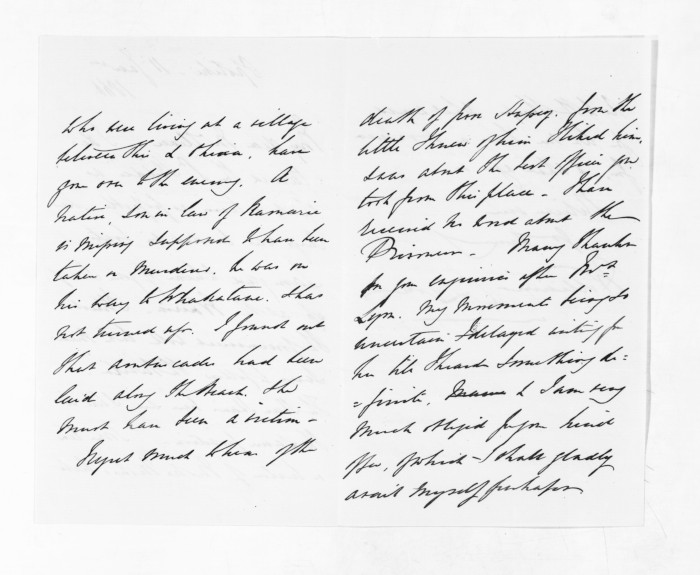 who were living at a village
between this & Ohiwa, have
gone over to the enemy. A
native, Son in law of Ramarie
is missing Supposed to have been
taken or Murdered. he was on
his way to Whakatane. & has
not turned up. I found out
that ambuscades had been
laid along the Beach. & he
must have been a victim -
Regret much to hear of the
death of poor. From the
little I knew of him I liked him,
& was about the best officer you
took from this place - I have
received no word about the
Prisoners - Many Thanks
for your enquiries after Mrs
Lyon. My Movements being so
uncertain I delayed writing for
her till I heard Something de=
=finite, & I am very
much obliged for your kind
offer, of which I shall gladly
avail myself perhaps